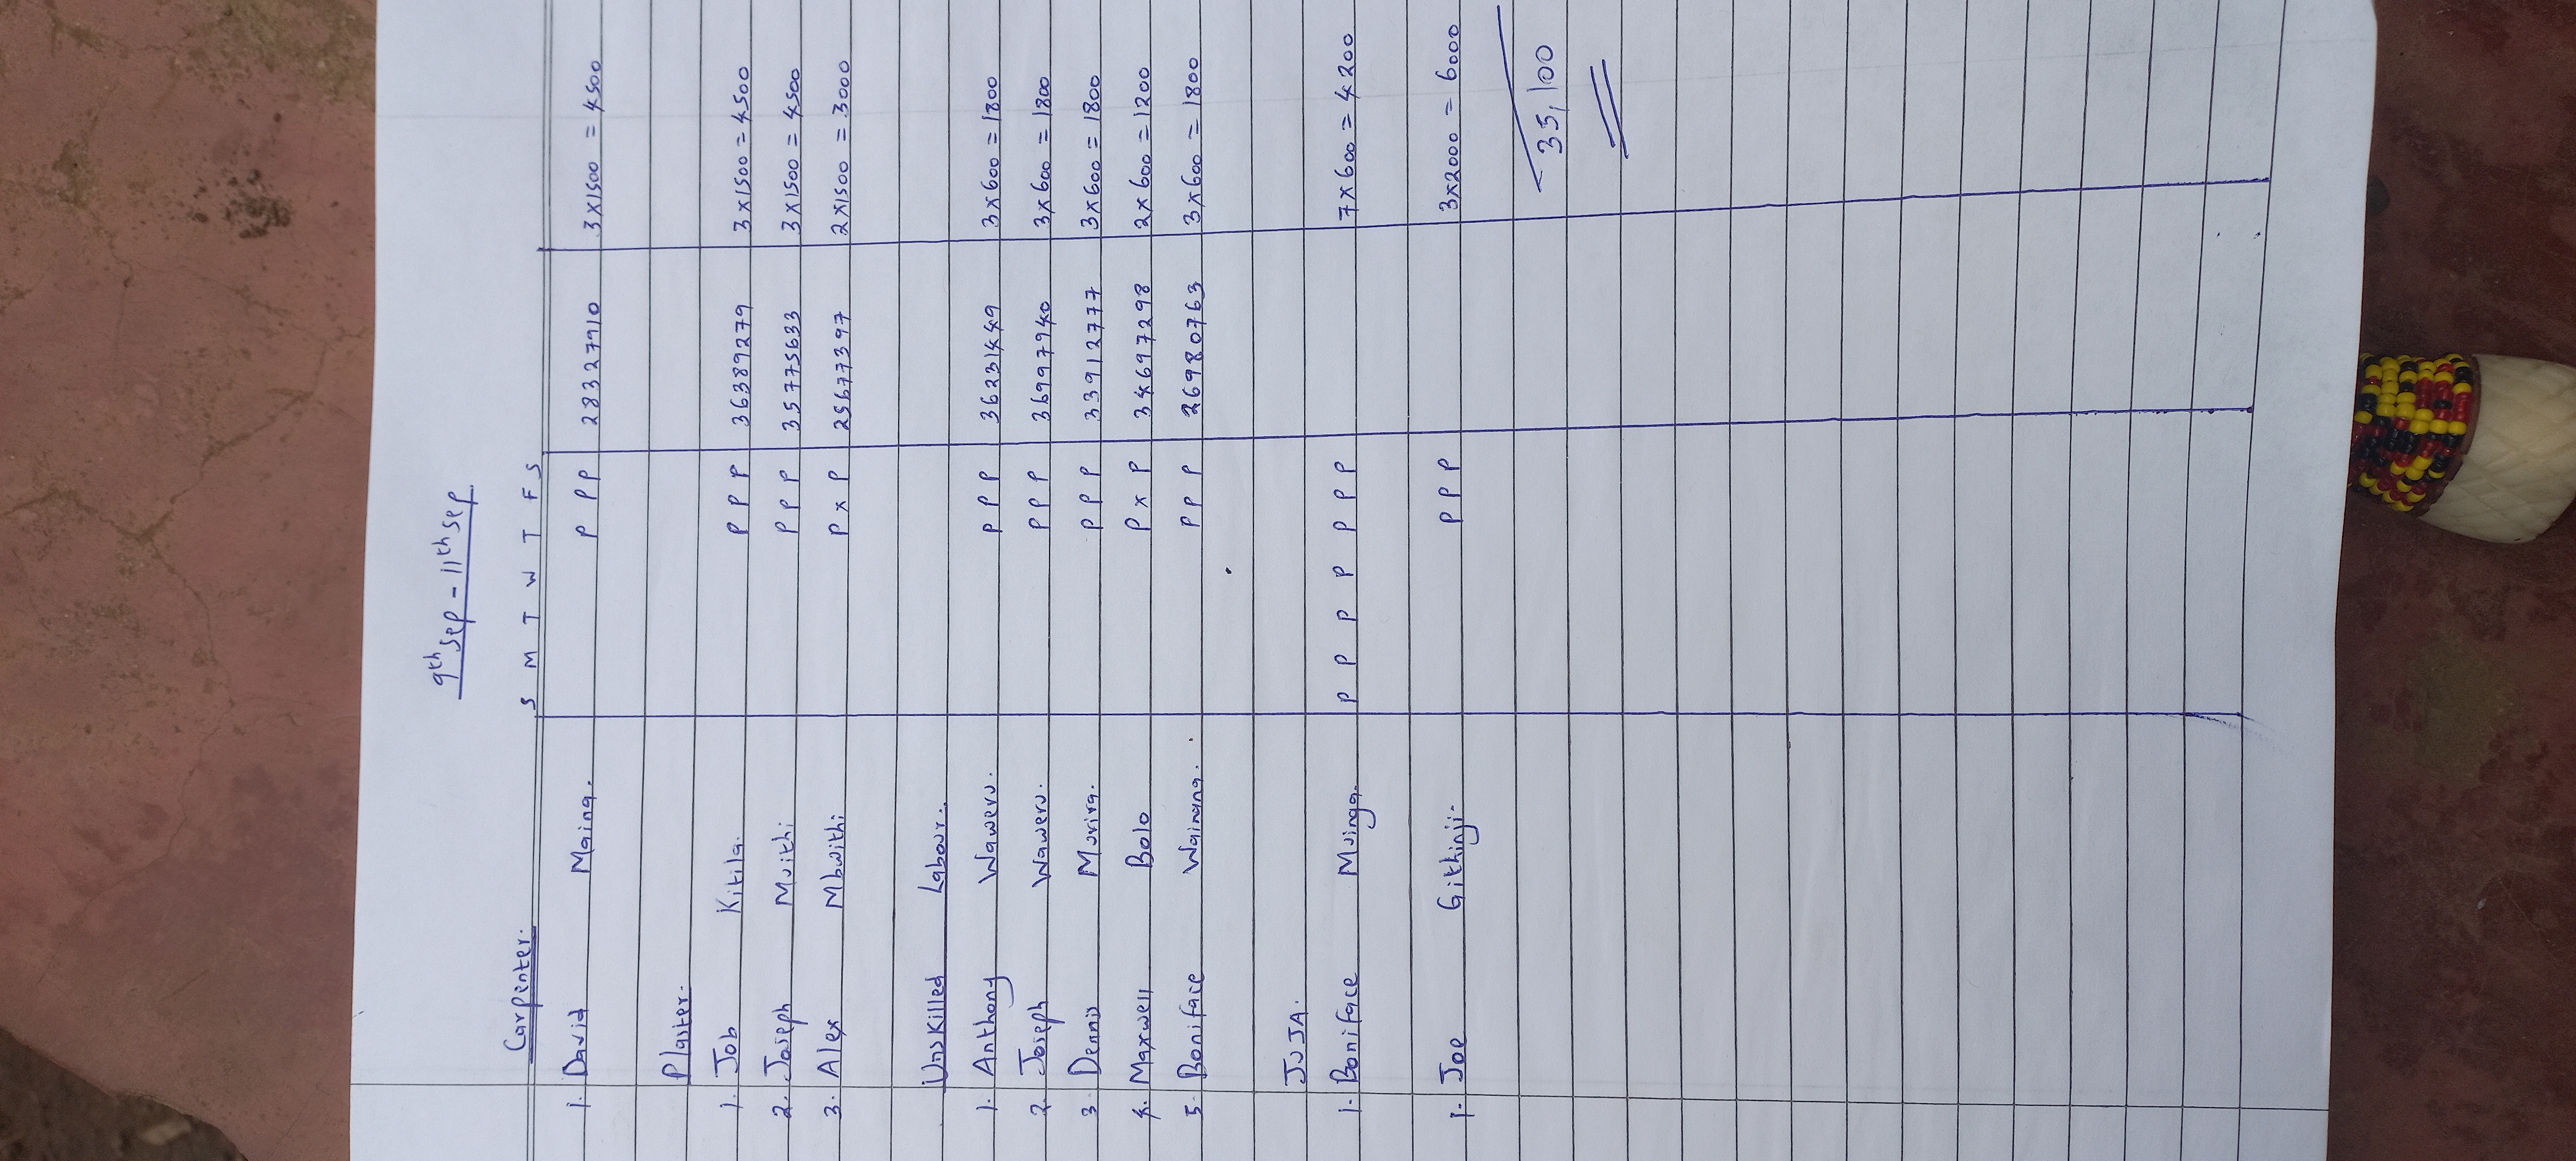 9th Sep - 11th Sep
Carpenter. S M T W T F S
1. David Maina. P P P 28327910 3x1500 = 4500
Plaster.
1. Job Kitila. P P P 36389279 3x1500 = 4500
2. Joseph Muithi P P P 35775633 3x1500 = 4500
3. Alex Mbwithi P x P 25677397 2x1500 = 3000
Unskilled Labour.
1. Anthony Waweru. P P P 36231449 3x600 = 1800
2. Joseph Waweru. P P P 36997940 3x600 = 1800
3. Dennis Murira. P P P 33912777 3x600 = 1800
4. Maxwell Bolo P x P 34697298 2x600 = 1200
5. Boniface Wainana. P P P 26980763 3x600 = 1800
JUJA.
1. Boniface Muinga. P P P P P P P 7x600 = 4200
1. Joe Githinji. P P P 3x2000 = 6000
35,100